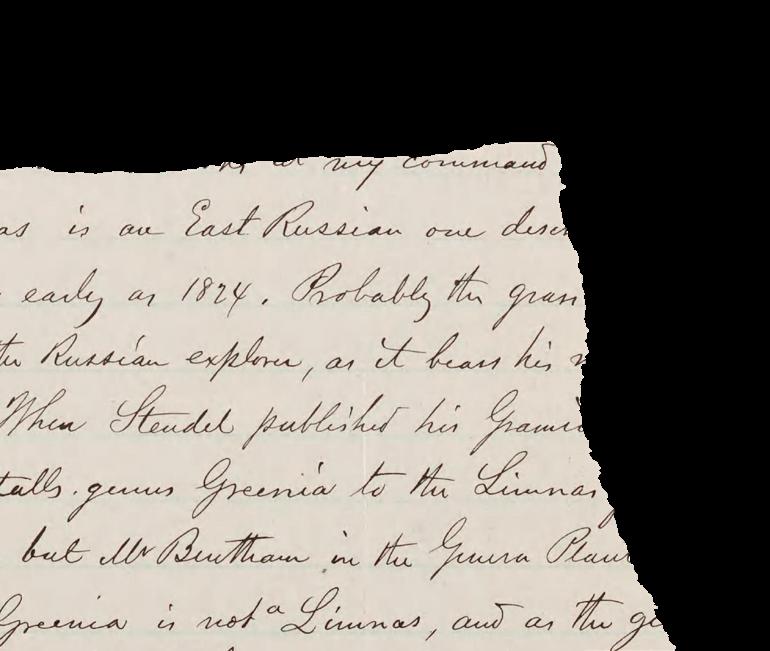 at my command
as is an East Russian one
early as 1824. Probably the grass
the Russian explorer, as it bears his
When Steudel published his
genus Greenia to the Limnas
but Mr Bentham in the Genera
Greenia is not a Limnas, and as the